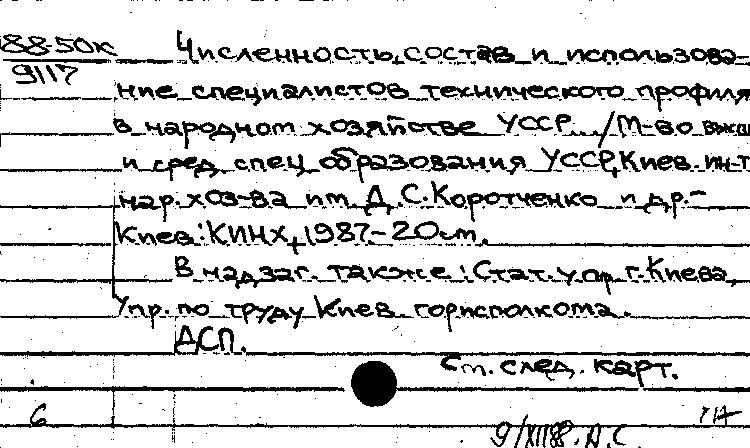 88-50к
9117
Численность, состав и использова-
ние специалистов технического профиля
в народном хозяйстве УССР.../М-во высш
и сред. спец. образования УССР, Киев. ин-т
нар. хоз-ва им. Д.С. Коротченко и др.-
Киев: КИНХ, 1987.-20 см.
В надзаг. также: Стат. упр. г. Киева,
Упр. по труду Киев. горисполкома.
ДСП.
См. след. карт.
6
9/XII88. А.С.